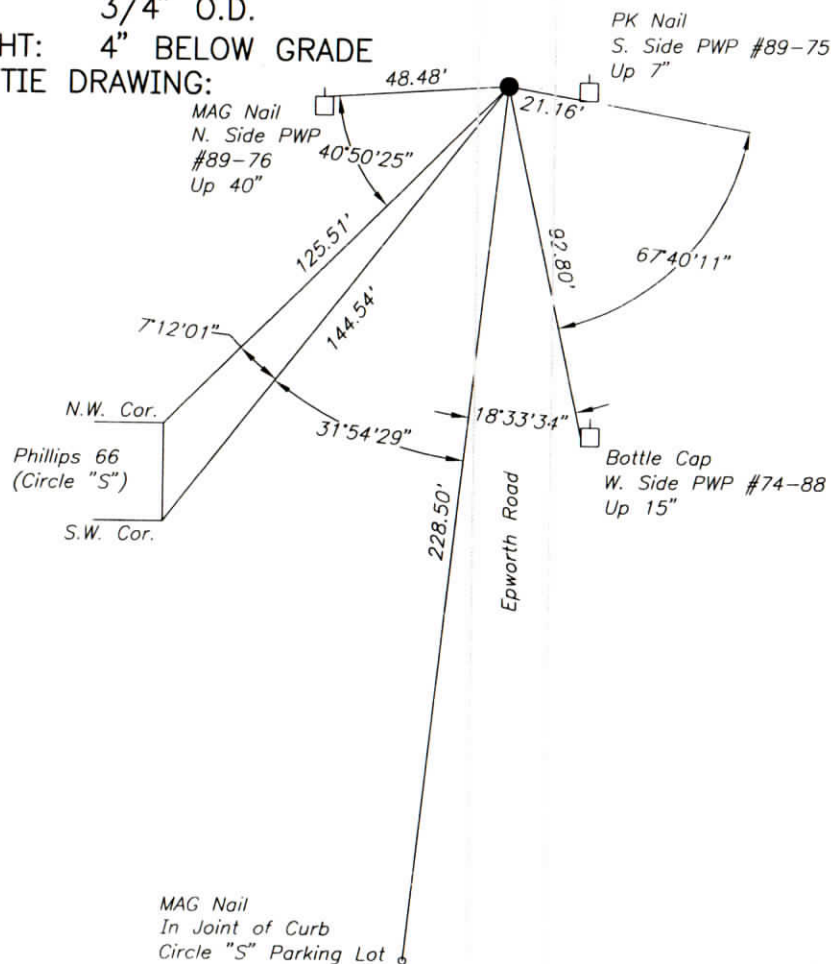 3/4" O.D.
HT: 4" BELOW GRADE
TIE DRAWING:
PK Nail
S. Side PWP #89-75
Up 7"
48.48'
21.16'
MAG Nail
N. Side PWP
#89-76
Up 40"
40°50'25"
125.51'
144.54'
92.80'
67°40'11"
7°12'01"
31°54'29"
18°33'34"
N.W. Cor.
Phillips 66
(Circle "S")
S.W. Cor.
228.50'
Epworth Road
Bottle Cap
W. Side PWP #74-88
Up 15"
MAG Nail
In Joint of Curb
Circle "S" Parking Lot